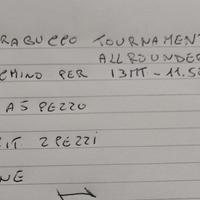 RABUCCO TOURNAMENT
ALLROUNDER
CHINO PER 13MT - 11.5
A 5 PEZZO
IT 2 PEZZI
NE